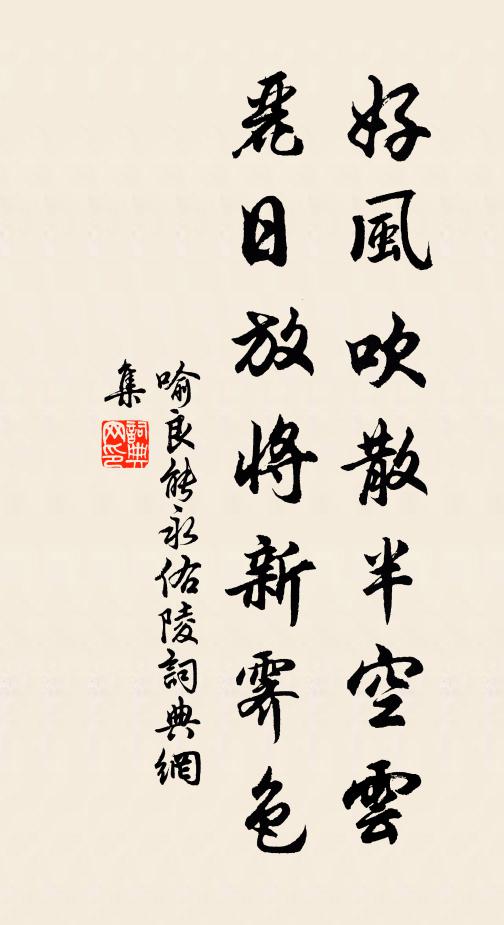 好風吹散半空雲
麗日放將新霽色
喻良能永佑陵詞典網
集
詞典
网印